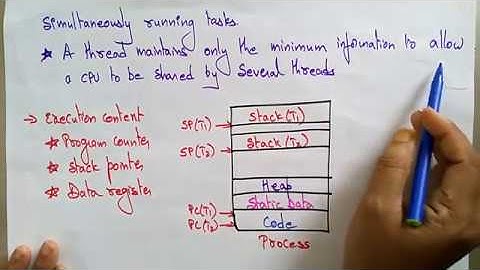 Simultaneously running tasks.
★ A thread maintains only the minimum information to allow
a CPU to be shared by Several threads
→ Execution content
★ Program counter
★ Stack pointer
★ Data register
SP(T1) → Stack(T1)
SP(T2) → Stack(T2)
Heap
Static Data
PC(T1) →
PC(T2) → Code
Process